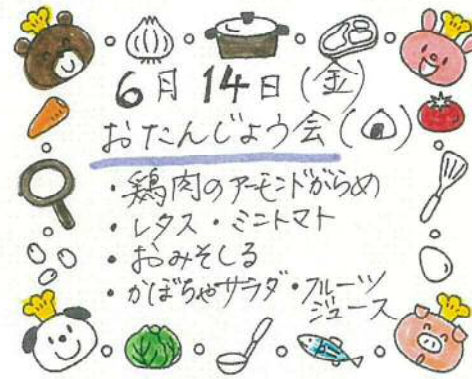 6月14日(金)
おたんじょう会(🍙)
・鶏肉のアーモンドがらめ
・レタス・ミニトマト
・おみそしる
・かぼちゃサラダ・フルーツ
ジュース